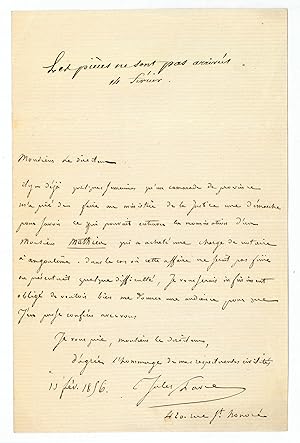 Les pièces ne sont pas arrivés.
14 février.
Monsieur Le directeur
il y a déjà quelques semaines qu'un camarade de province
m'a prié de faire au ministère de la Justice une démarche
pour savoir ce qui pouvait entraver la nomination d'un
Monsieur Mathieu qui a acheté une charge de notaire
à angoulême. dans le cas où cette affaire ne peut pas faire
ou présenterait quelque difficulté, Je vous serais infiniment
obligé de vouloir bien me donner une audience pour que
J'en puisse conférer avec vous
Je vous prie, monsieur le directeur,
d'agréer l'hommage de mes respectueuses civilités
13 fév. 1856. Jules Favre
420. rue St honoré